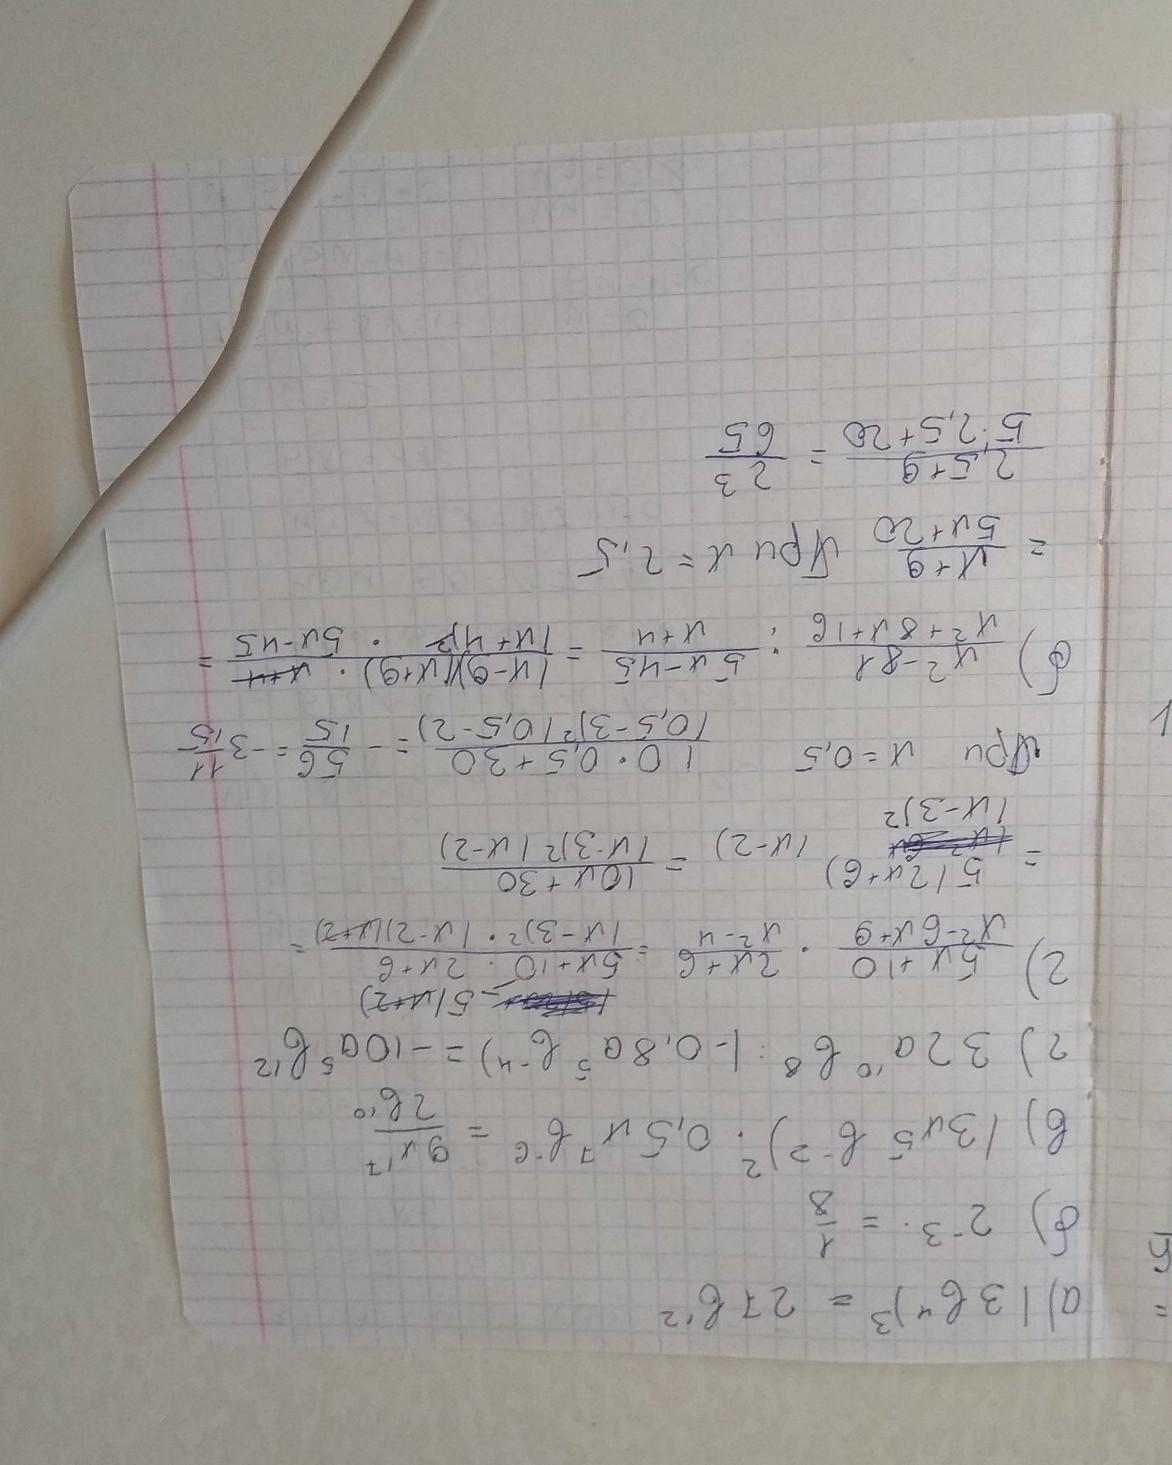 а) (3b⁴)³ = 27b¹²
б) 2⁻³ · = 1/8
в) (3x⁵ b⁻²)² · 0,5x⁷ b⁻⁶ = 9x¹⁷/2b¹⁰
г) 32a¹⁰ b⁸ : (-0,8a⁵ b⁻⁴) = -10a⁵ b¹²
= 5(x+2)
2) 5x+10/x²-6x+9 · 2x+6/x²-4 = 5x+10 · 2x+6/(x-3)² · (x-2)(x+2) =
= 5(2x+6)/(x-3)² (x-2) = 10x+30/(x-3)²(x-2)
При x = 0,5 10·0,5+30/(0,5-3)²(0,5-2) = - 56/15 = -3 11/15
б) x²-81/x²+8x+16 : 5x-45/x+4 = (x-9)(x+9) · x+4/(x+4)² · 5x-45 =
= x+9/5x+20 При x = 2,5
2,5+9/5·2,5+20 = 23/65
=
5
1